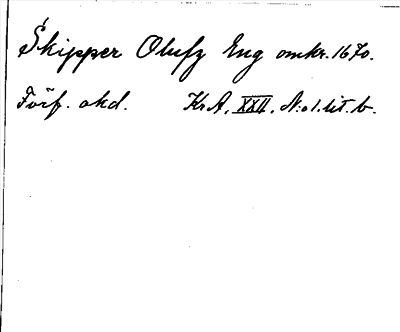 Skipper Olufz Eng omkr. 1670.
Förf. okd. KrA, XXII, N:o 1. lit. b.